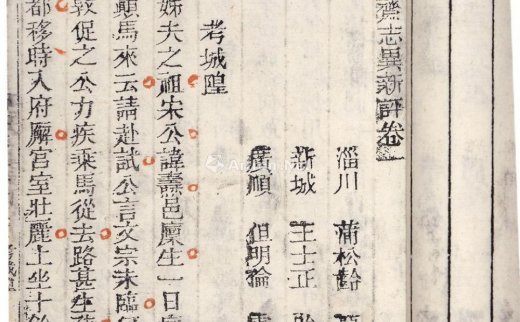 齋志異新評卷
淄川 蒲松齡
新城 王士正
廣順 但明倫
考城隍
姊夫之祖宋公諱燾邑廩生一日
顛馬來云請赴試公言文宗未臨
敦促之公力疾乘馬從去路甚生
都移時入府廨宮室壯麗上坐十
考城隍